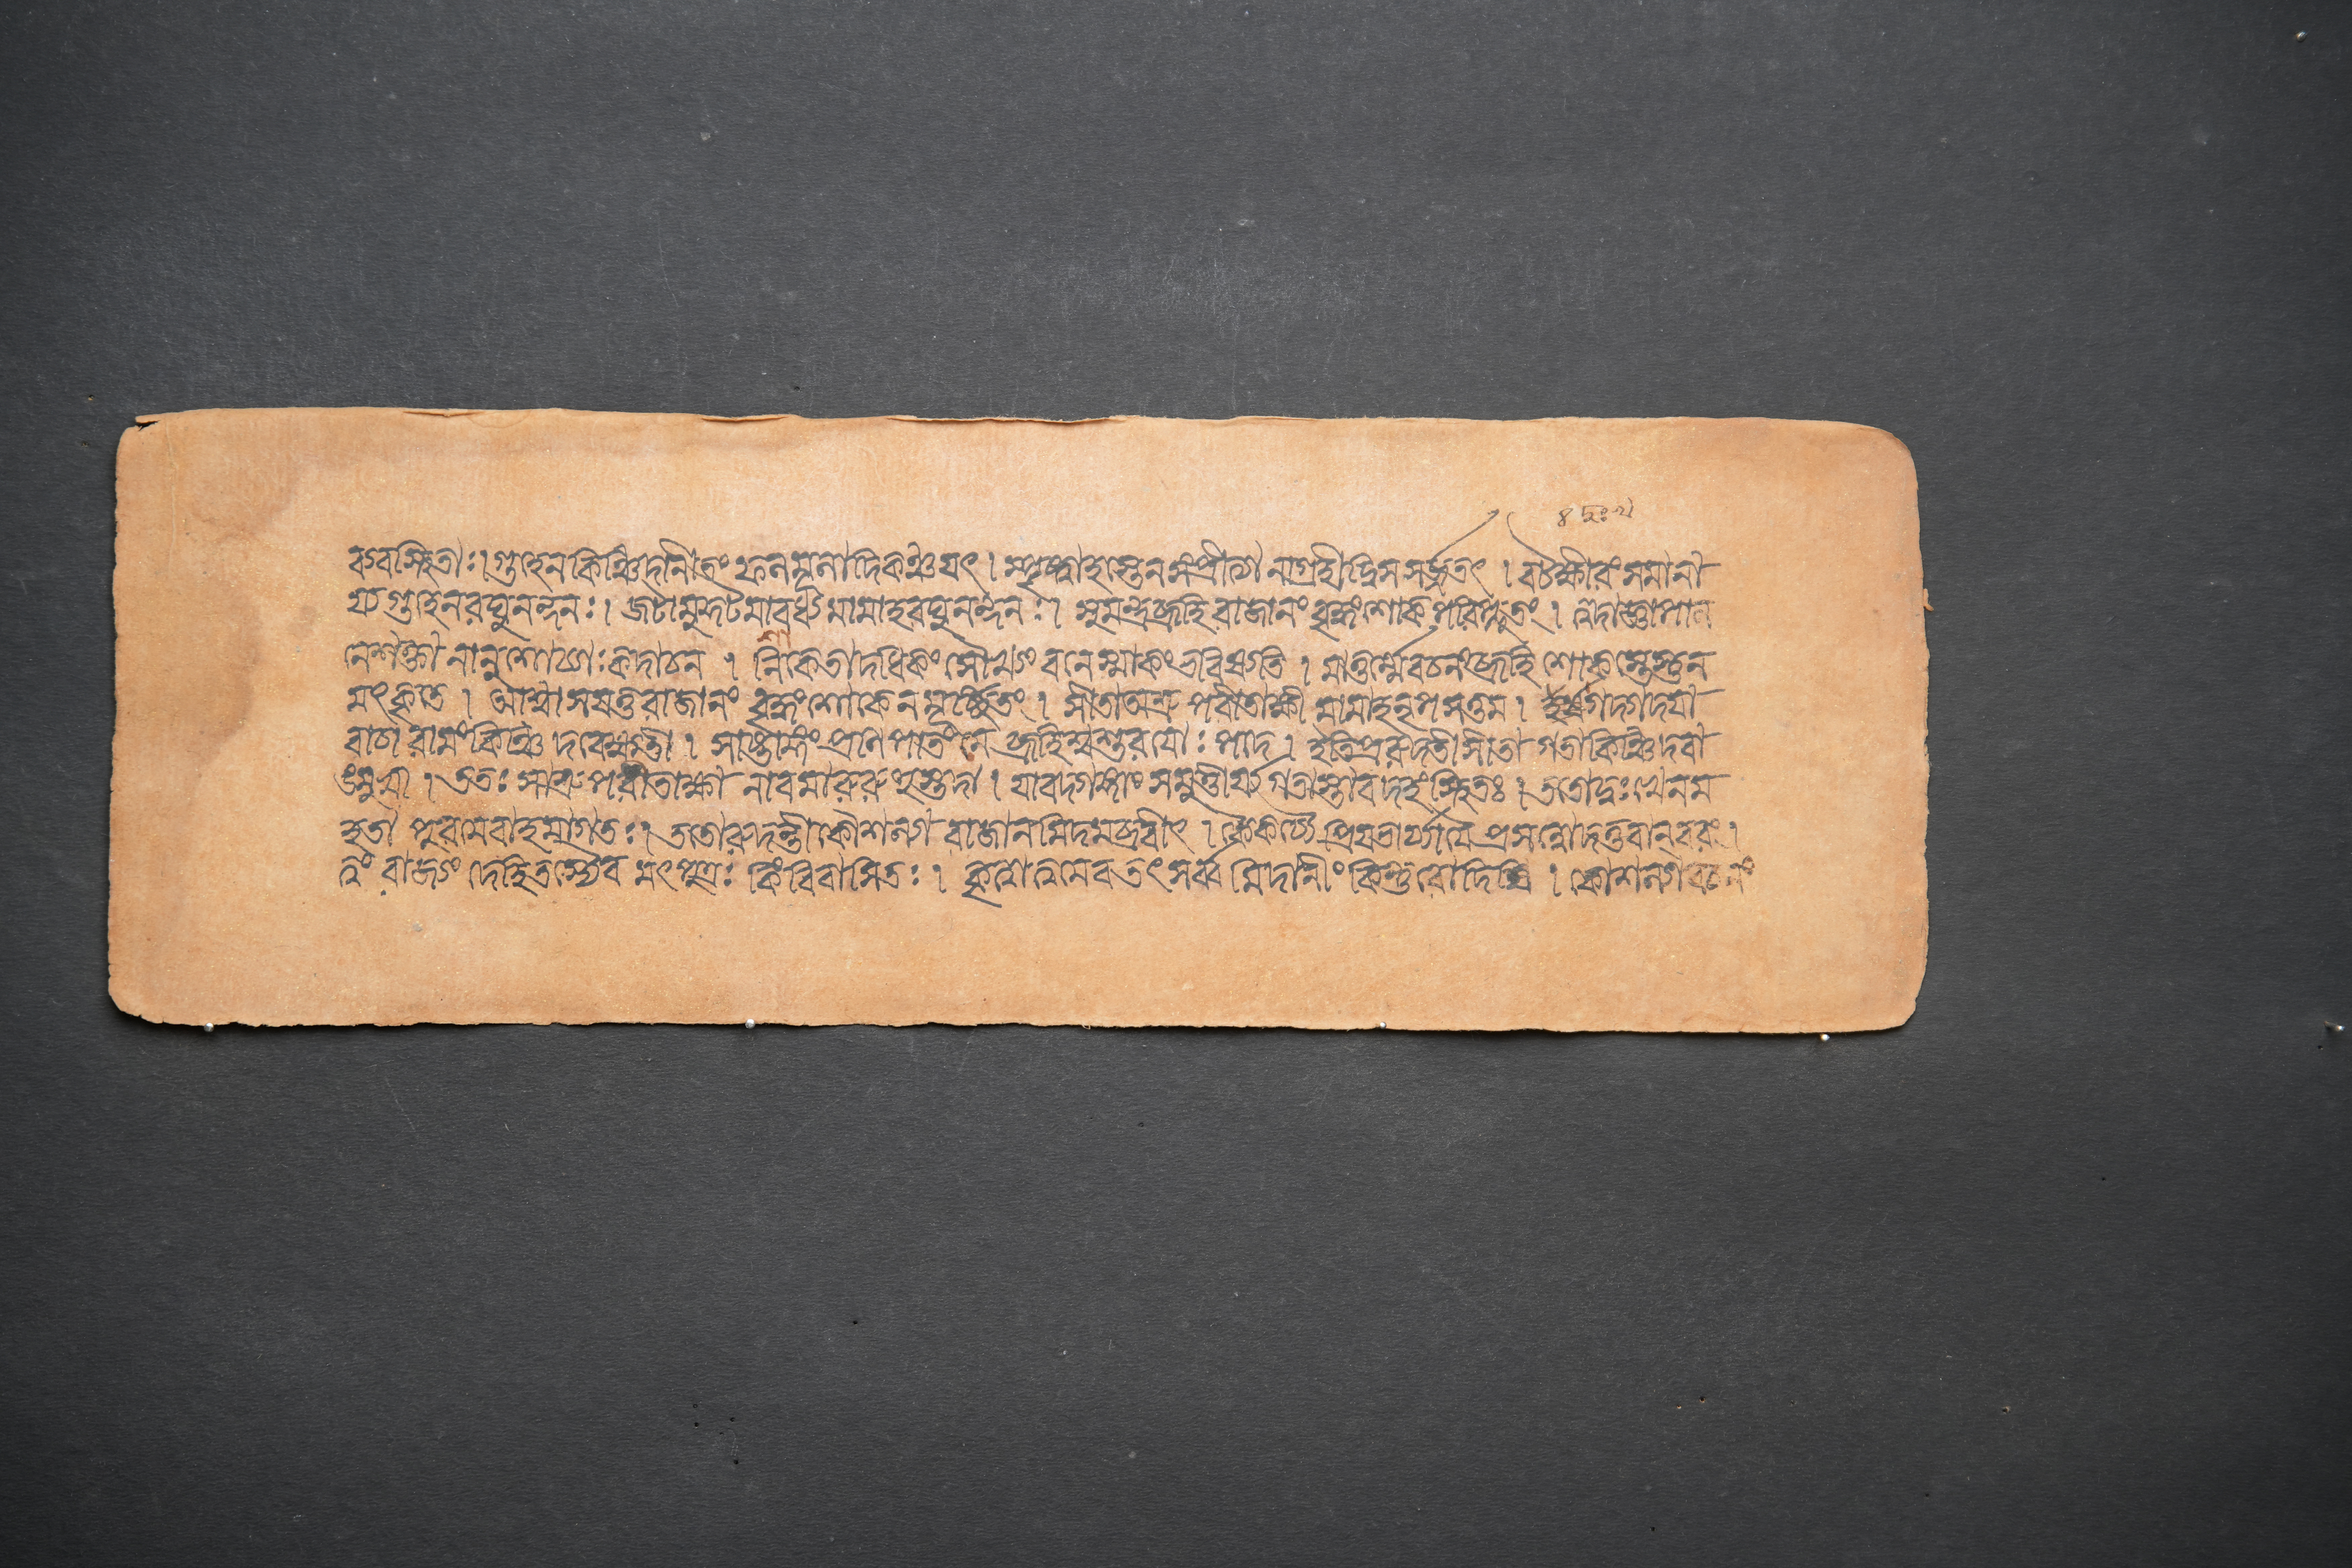 ব্যবস্থিতা ঃ। গুহেন কিঞ্চিদানীতং ফলমূলাদিকঞ্চ যৎ । স্পৃষ্ট্বা হস্তেন সংপ্রীত্যা নাগ্রহীদ্বিসসর্জ্জ তৎ । বটক্ষীরং সমানী
য্য গুহেন রঘুনন্দনঃ। জটামুকুটমাবধ্য মামাহ রঘুনন্দনঃ। সুমন্ত্র ব্রূহি রাজানং বৃদ্ধং শোকপরিপ্লুতং । ত্বদাজ্ঞাপাল
নে শক্তো নানুশোচ্যাঃ কদাচন । সাকেতাদধিকং সৌখ্যং বনেস্মাকং ভবিষ্যতি । মাতুর্ম্মে বচনং ব্রূহি শোকস্তেস্তু ন
মৎকৃতে । আশ্বাসয়তু রাজানং বৃদ্ধং শোকেন মূর্চ্ছিতং । সীতা অশ্রুপরীতাক্ষী মামাহ নৃপসত্তম । গদ্গদয়া
বাচা রামং কিঞ্চিদবেক্ষতী । সাষ্টাঙ্গং প্রণিপাতং মে ব্রূহি শ্বশুরয়োঃ পাদ । ইতি প্ররুদতী সীতা গতা কিঞ্চিদবা
ঙ্মুখী । ততঃ সাশ্রুপরীতাক্ষা নাবমারুরুহুস্তদা । যাবদ্গঙ্গাং সমুত্তীর্য্য গতাস্তাবদহং স্থিতঃ । ততো দুঃখেন ম
হতা পুরমেবাহমাগতঃ। ততো রুদন্তী কৌশল্যা রাজানমিদমব্রবীৎ । কৈকেয্যৈ প্রিয়ভার্য্যায়ৈ প্রসন্নো দত্তবান্ বরং ।
ত্বং রাজ্যং দেহি তস্যৈব মৎপুত্রঃ কিং বিবাসিতঃ । কৃত্বা ত্বমেব তৎ সর্ব্বমিদানীং কিন্নু রোদিষি । কৌশল্যাবচনং